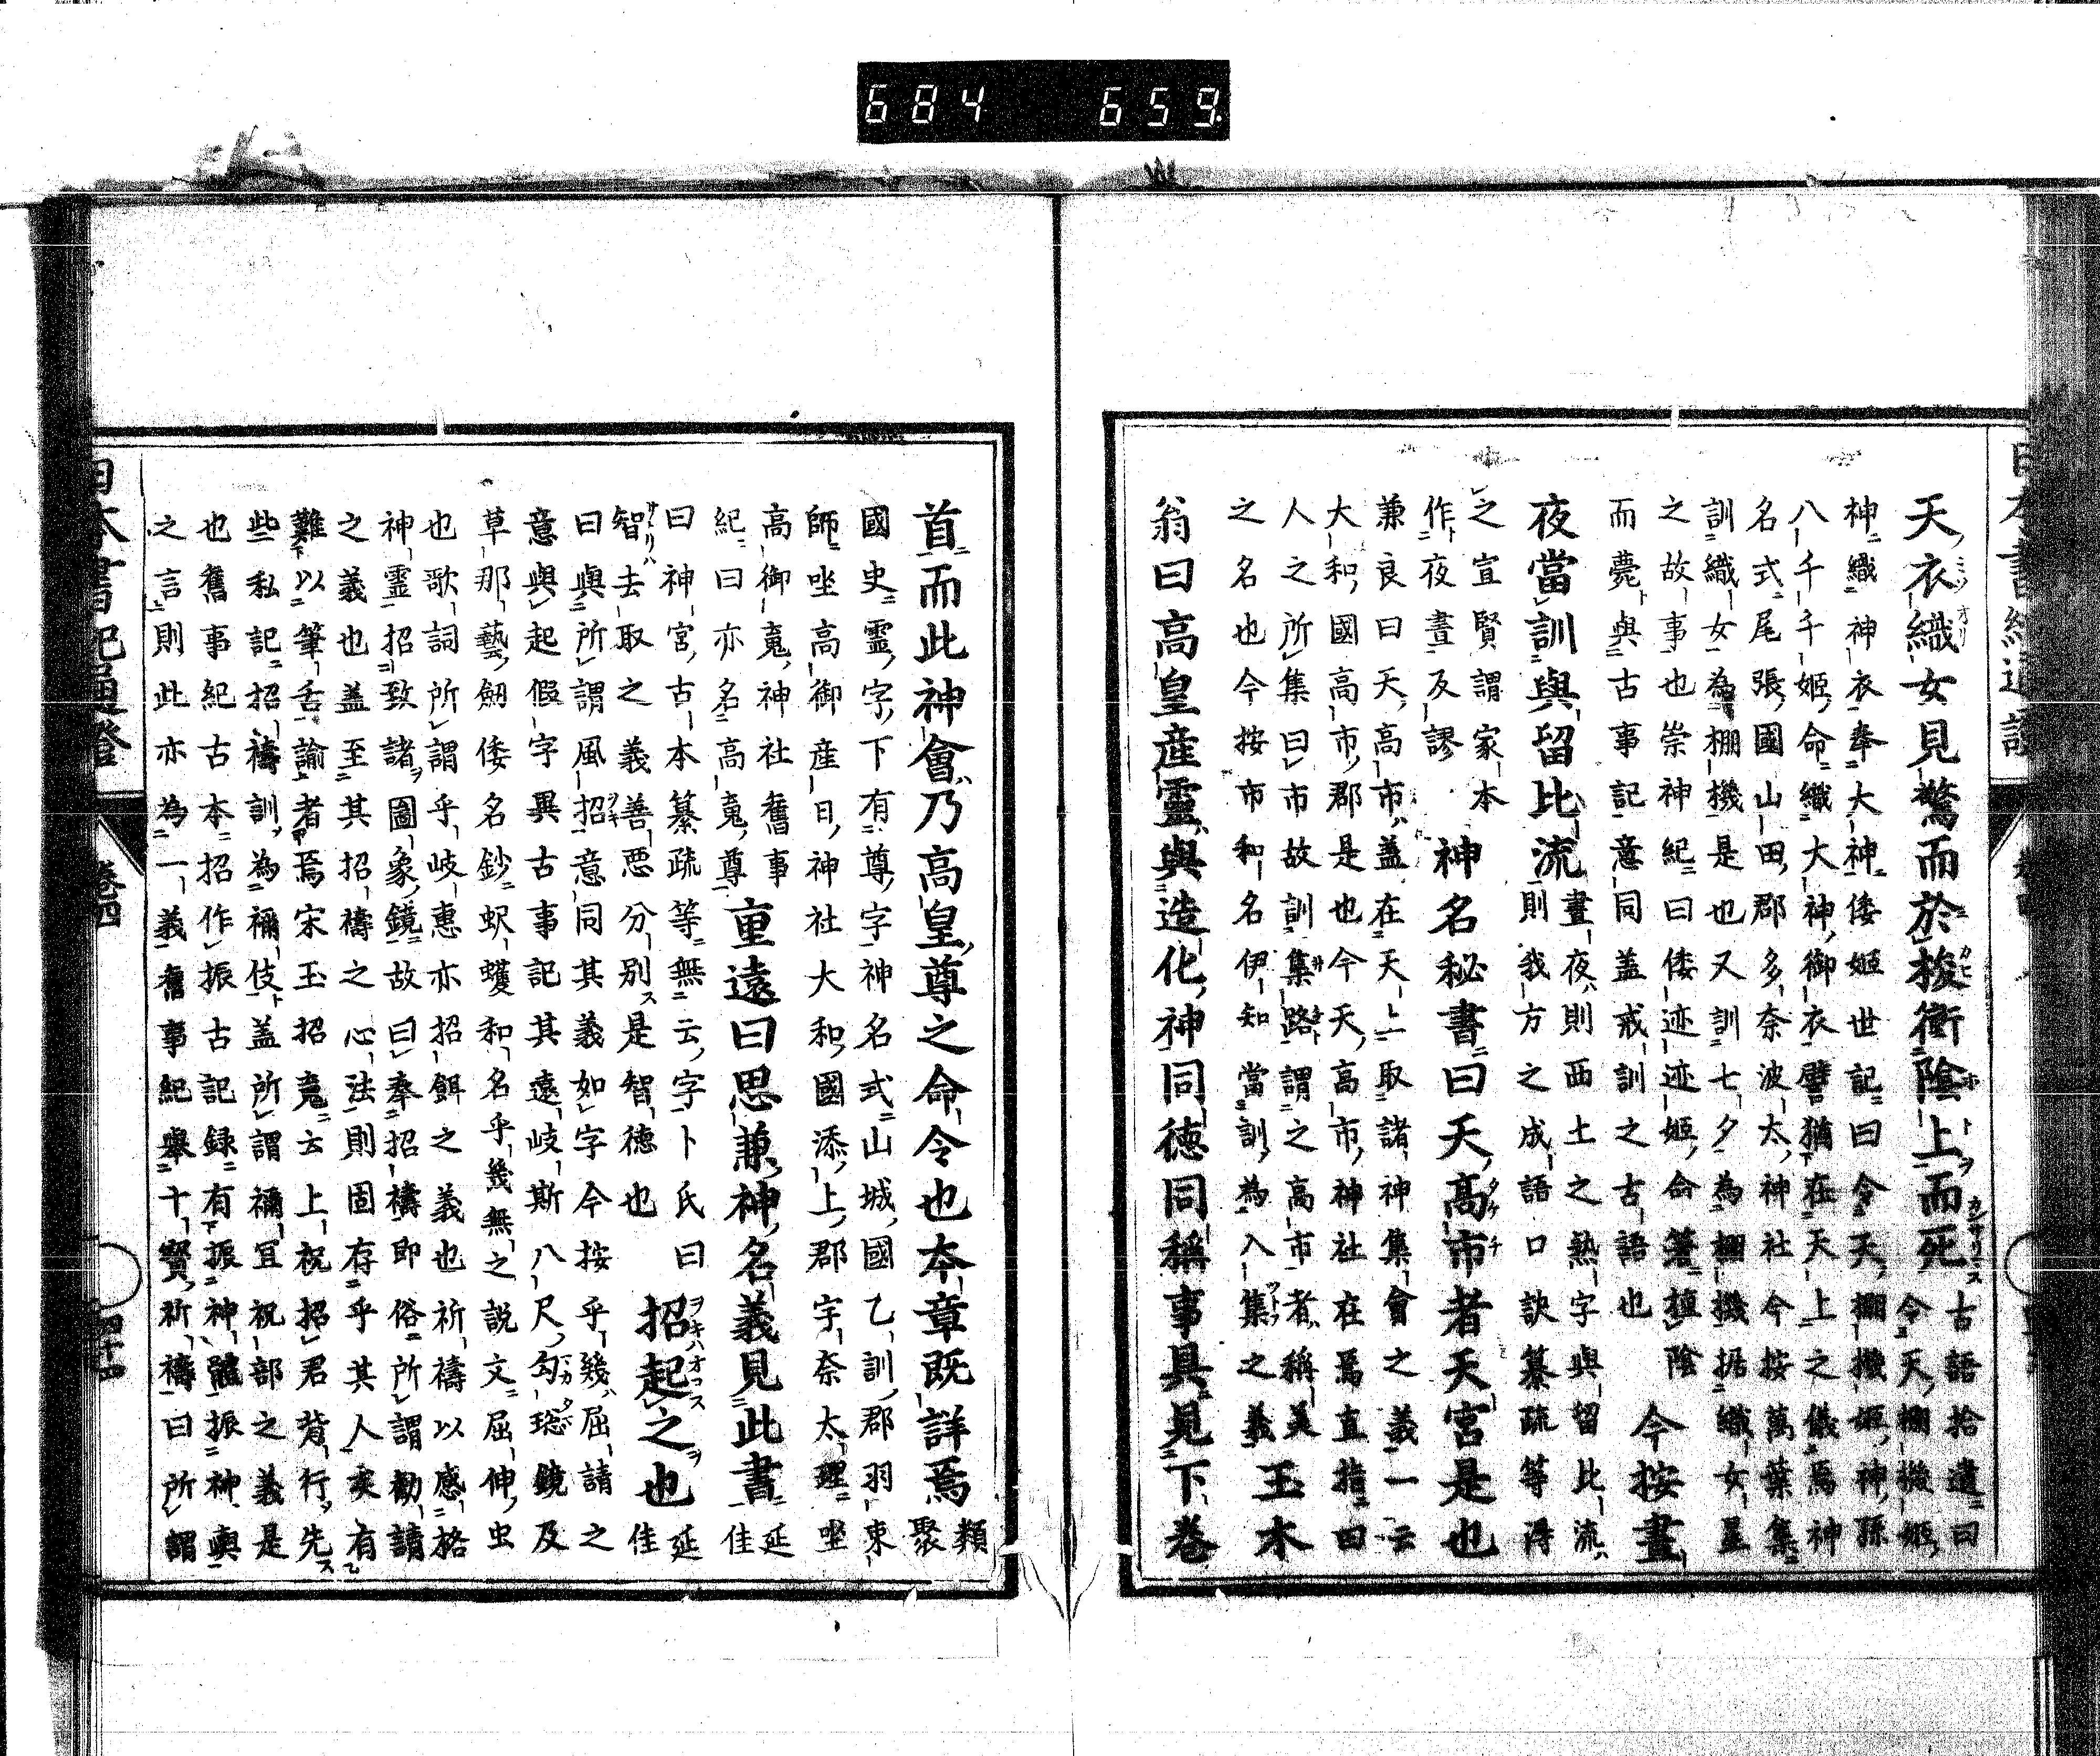 684 659
天衣織女見驚而於梭衝陰上而死
古語拾遺曰
令天棚機姬
神織神衣奉大神倭姬世記曰令天棚機姬神孫
八千千姬命織大神御衣譬猶在天上之儀焉神
名式尾張國山田郡多奈波太神社今按萬葉集
訓織女為棚機是也又訓七夕為棚機据織女星
之故事也崇神紀曰倭迹迹姬命箸撞陰
而薨與古事記意同蓋戒訓之古語也
今按晝
夜當訓與留比流
晝夜則西土之熱字與留比流
則我方之成語口訣纂疏等淂
之宜賢謂家本
作夜晝及謬
神名秘書曰天高市者天宮是也
兼良曰天高市蓋在天上取諸神集會之義一云
大和國高市郡是也今天高市神社在焉直指曰
人之所集曰市故訓集路謂之高市者稱美
之名也今按市和名伊知當訓為入集之義
玉木
翁曰高皇産靈與造化神同徳同稱事具見下卷
首而此神會乃高皇尊之命令也本章既詳焉
類
聚
國史靈字下有尊字神名式山城國乙訓郡羽束
師坐高御産日神社大和國添上郡宇奈太理坐
高御䰟神社舊事
紀曰亦名高䰟尊
重遠曰思兼神名義見此書
延
佳
曰神宮古本纂疏等無云字卜氏曰
智去取之義善惡分別是智德也
招起之也
延
佳
曰與所謂風招意同其義如字今按乎幾屈請之
意與起假字異古事記其遠岐斯八尺勾璁鏡及
草那藝劒倭名鈔蚇蠖和名乎幾無之說文屈伸虫
也歌詞所謂乎岐惠亦招餌之義也祈禱以感格
神靈招致諸圖象鏡故曰奉招禱即俗所謂勸請
之義也蓋至其招禱之心法則固存乎其人矣有
難以筆舌諭者焉宋玉招䰟云上祝招君背行先
些私記招禱訓為禰伎蓋所謂禰宜祝部之義是
也舊事紀古本招作振古記録有振神體振神輿
之言則此亦為一義舊事紀舉十寳祈禱曰所謂
卷四